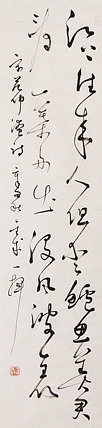 江上往來人但愛鱸魚美君
看一葉舟出沒風波裏
宋范仲淹詩